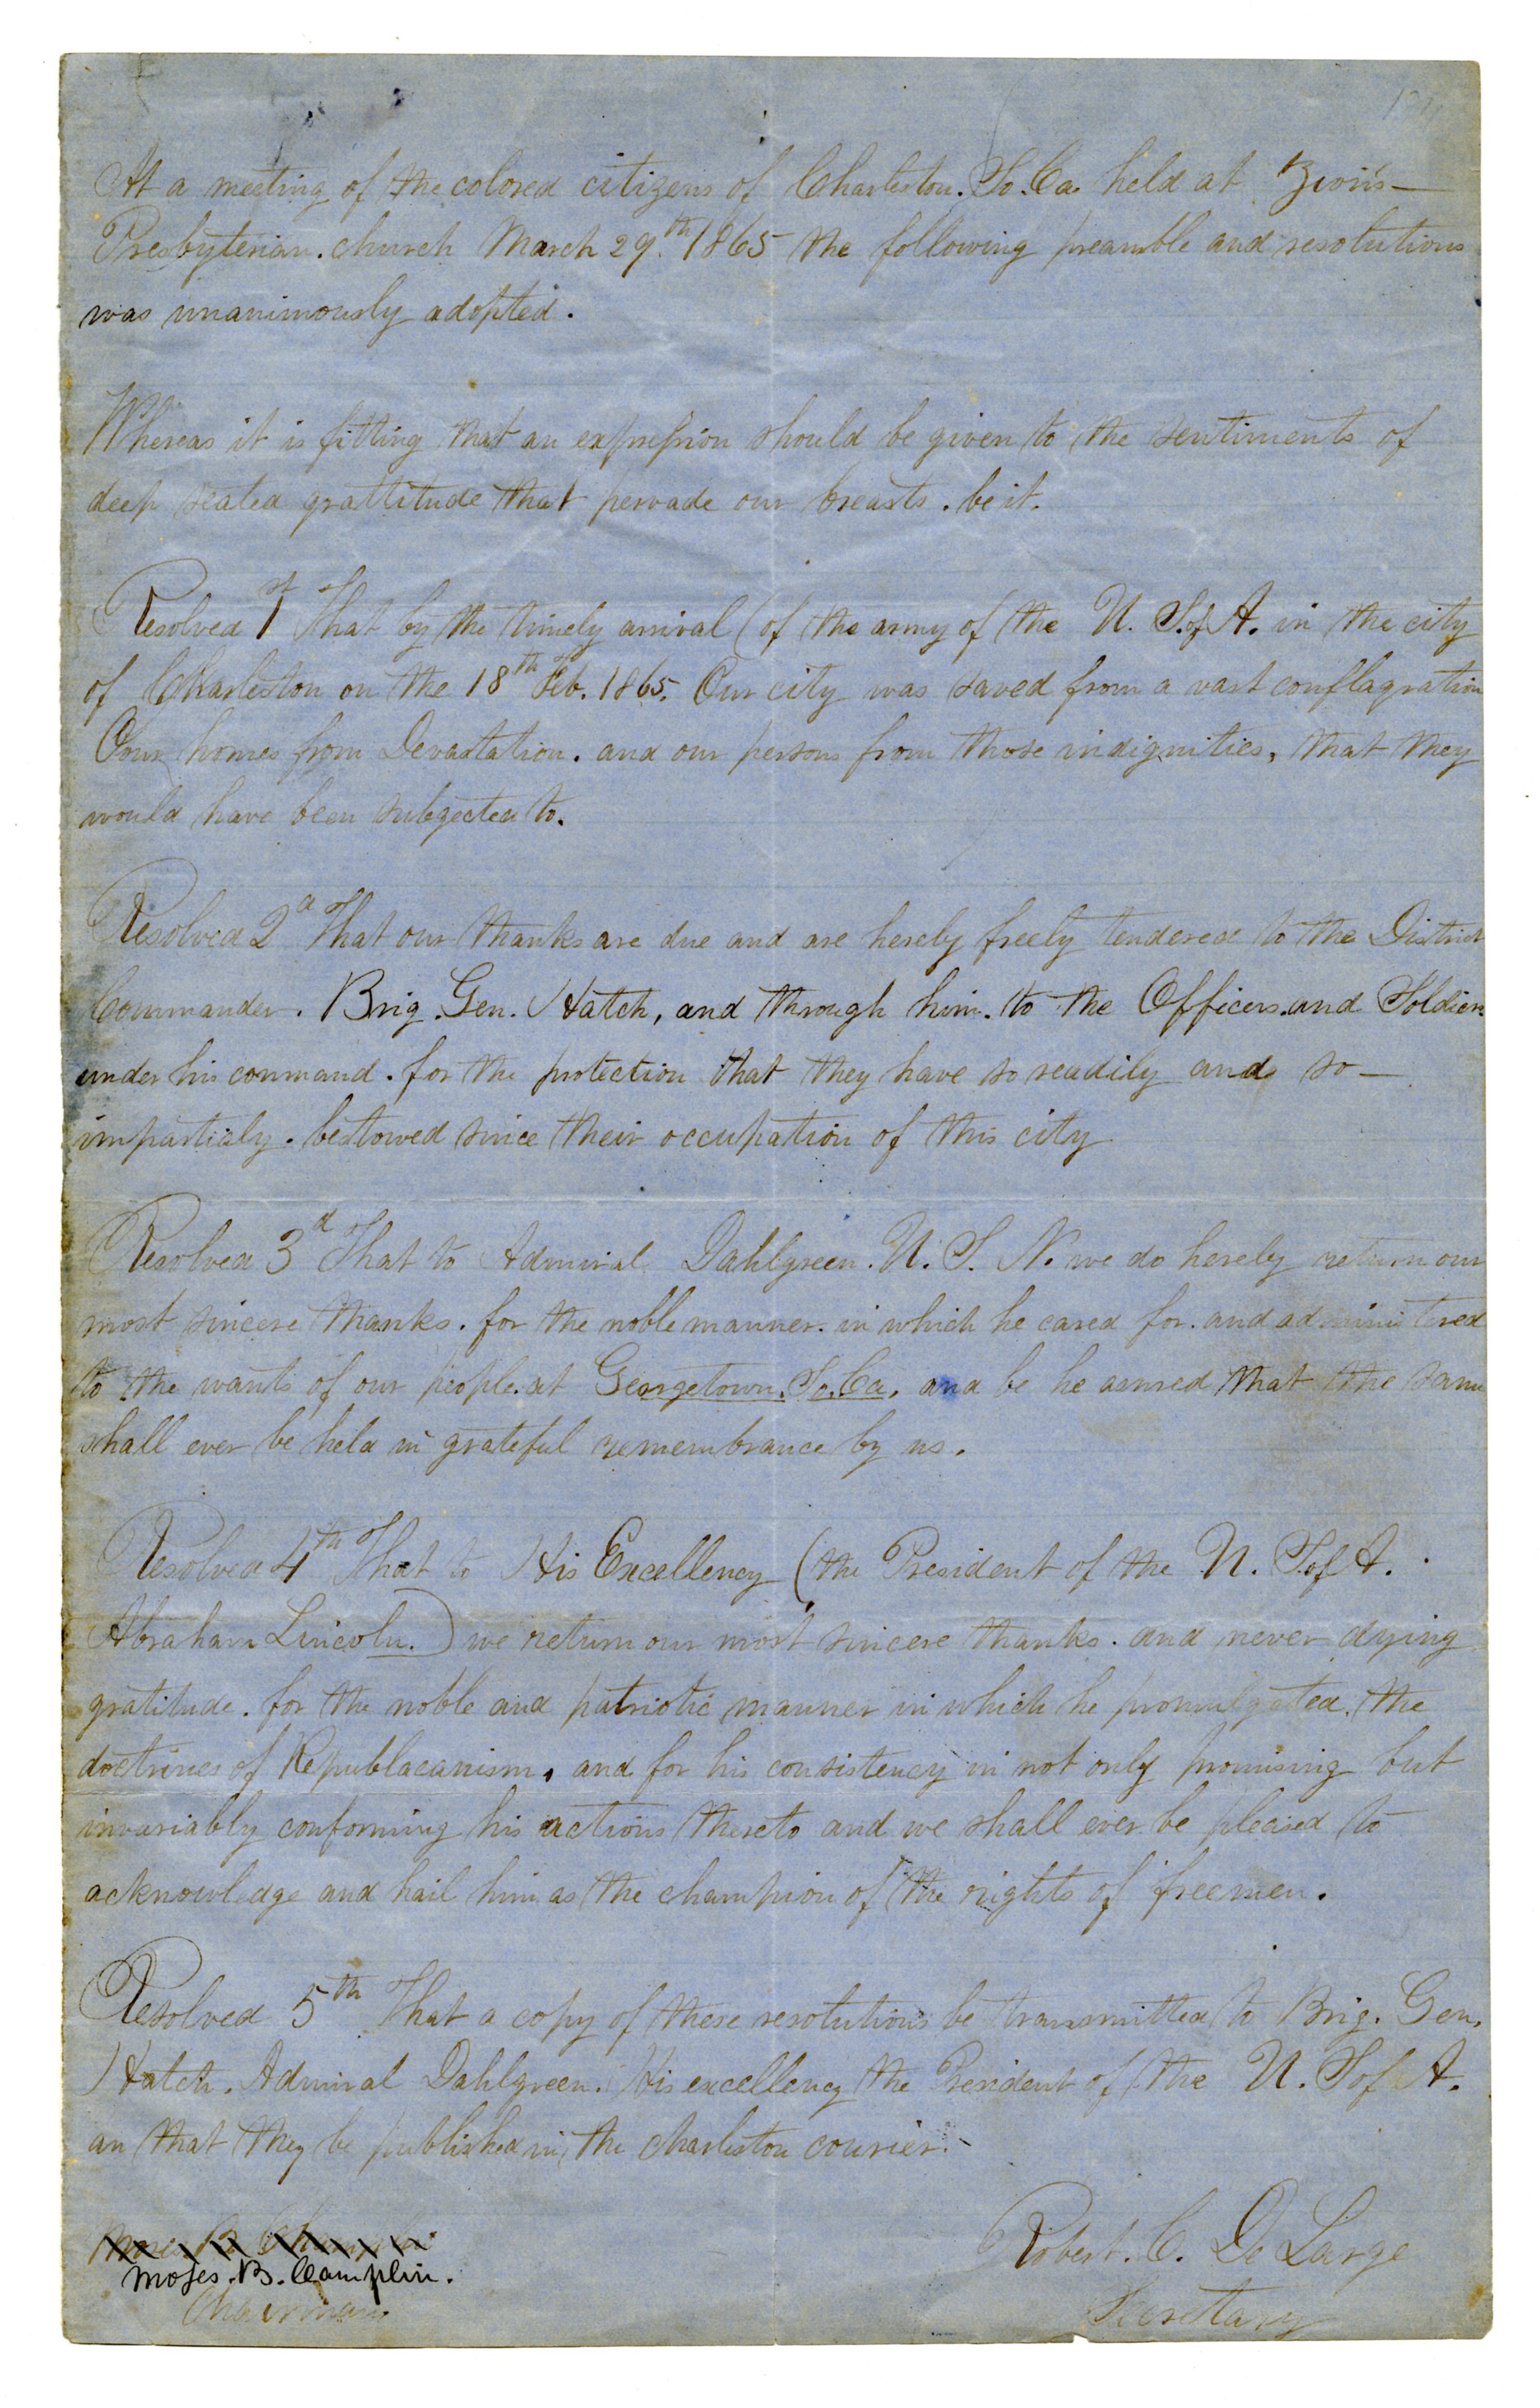 At a meeting of the colored citizens of Charleston. So. Ca. held at Zion's —
Presbyterian. church March 29.th 1865 the following preamble and resolutions
was unanimously adopted.
Whereas it is fitting that an expression should be given to the sentiments of
deep seated grattitude that pervade our breasts. be it.
Resolved 1st That by the timely arrival (of the army of the U. S. of A. in the city
of Charleston on the 18th Feb. 1865. Our city was saved from a vast conflagration
Our homes from Devastation. and our persons from those indignities, that they
would have been subgected to.
Resolved 2d That our thanks are due and are hereby freely tendered to the District
Commander. Brig. Gen. Hatch, and through him. to the Officers. and Soldiers
under his command. for the protection that they have so readily and so —
impartialy. bestowed since their occupation of this city
Resolved 3d That to Admiral Dahlgreen. U. S. N. we do hereby return our
most sincere thanks. for the noble manner. in which he cared for. and administered
to the wants of our people. at Georgetown. So. Ca. and be he assured that the same
shall ever be held in grateful remembrance by us.
Resolved 4th That to His Excellency (the President of the U. S. of A.
Abraham Lincoln.) we return our most sincere thanks. and never dying
gratitude. for the noble and patriotic manner in which he promulgated. the
doctrines of Republacanism, and for his consistency in not only promising but
invariably conforming his actions thereto and we shall ever be pleased to
acknowledge and hail him as the champion of the rights of freemen.
Resolved 5th That a copy of these resolutions be transmitted to Brig. Gen.
Hatch. Admiral Dahlgreen. His excellency the President of the U. S of A.
an that they be published in the charleston courier.
Robert. C. De Large
Moses. B. Camplin.
Chairman
Secretary